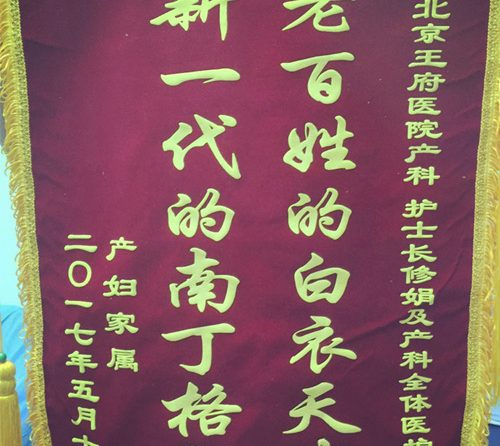 北京王府医院产科 护士长修娟及产科全体医
老百姓的白衣天
新一代的南丁格
产妇家属
二〇一七年五月